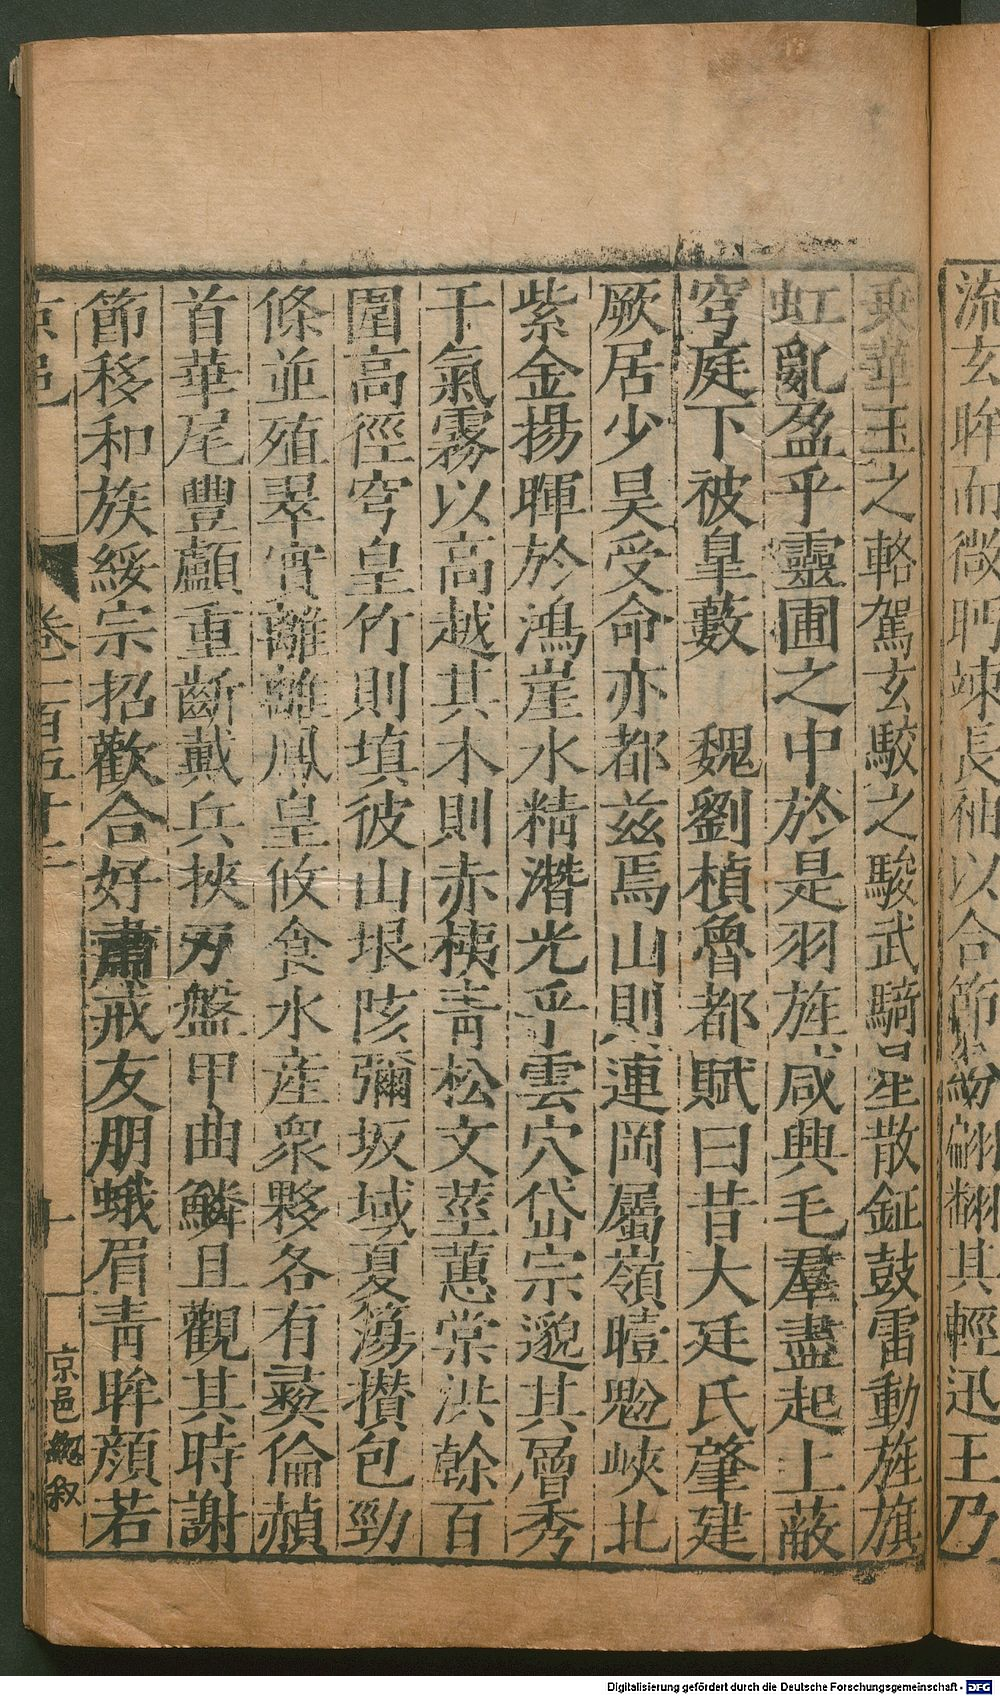 流玄眸而微眄竦長袖以合節紛翩翻其輕迅王乃
乗華玉之輅駕玄駮之駿武騎星散鉦鼓雷動旌旗
虹亂盈乎靈圃之中於是羽旌咸興毛羣盡起上蔽
穹庭下被皐藪　魏劉楨魯都賦曰昔大廷氏肇建
厥居少昊受命亦都兹焉山則連岡屬嶺曀䰟峽北
紫金揚暉於鴻崖水精濳光乎雲穴岱宗邈其層秀
干氣霧以高越其木則赤桋青松文莖蕙棠洪幹百
圍高徑穹皇竹則填彼山垠陔彌坂域夏簜攢包勁
條並殖翠實離離鳳皇攸食水産衆夥各有彛倫䫒
首華尾豐顱重斷戴兵挾刃盤甲曲鱗且觀其時謝
節移和族綏宗招歡合好肅戒友朋蛾眉青眸顔若
京邑
卷一百五十二
十
京邑總叙
Digitalisierung gefördert durch die Deutsche Forschungsgemeinschaft - DFG